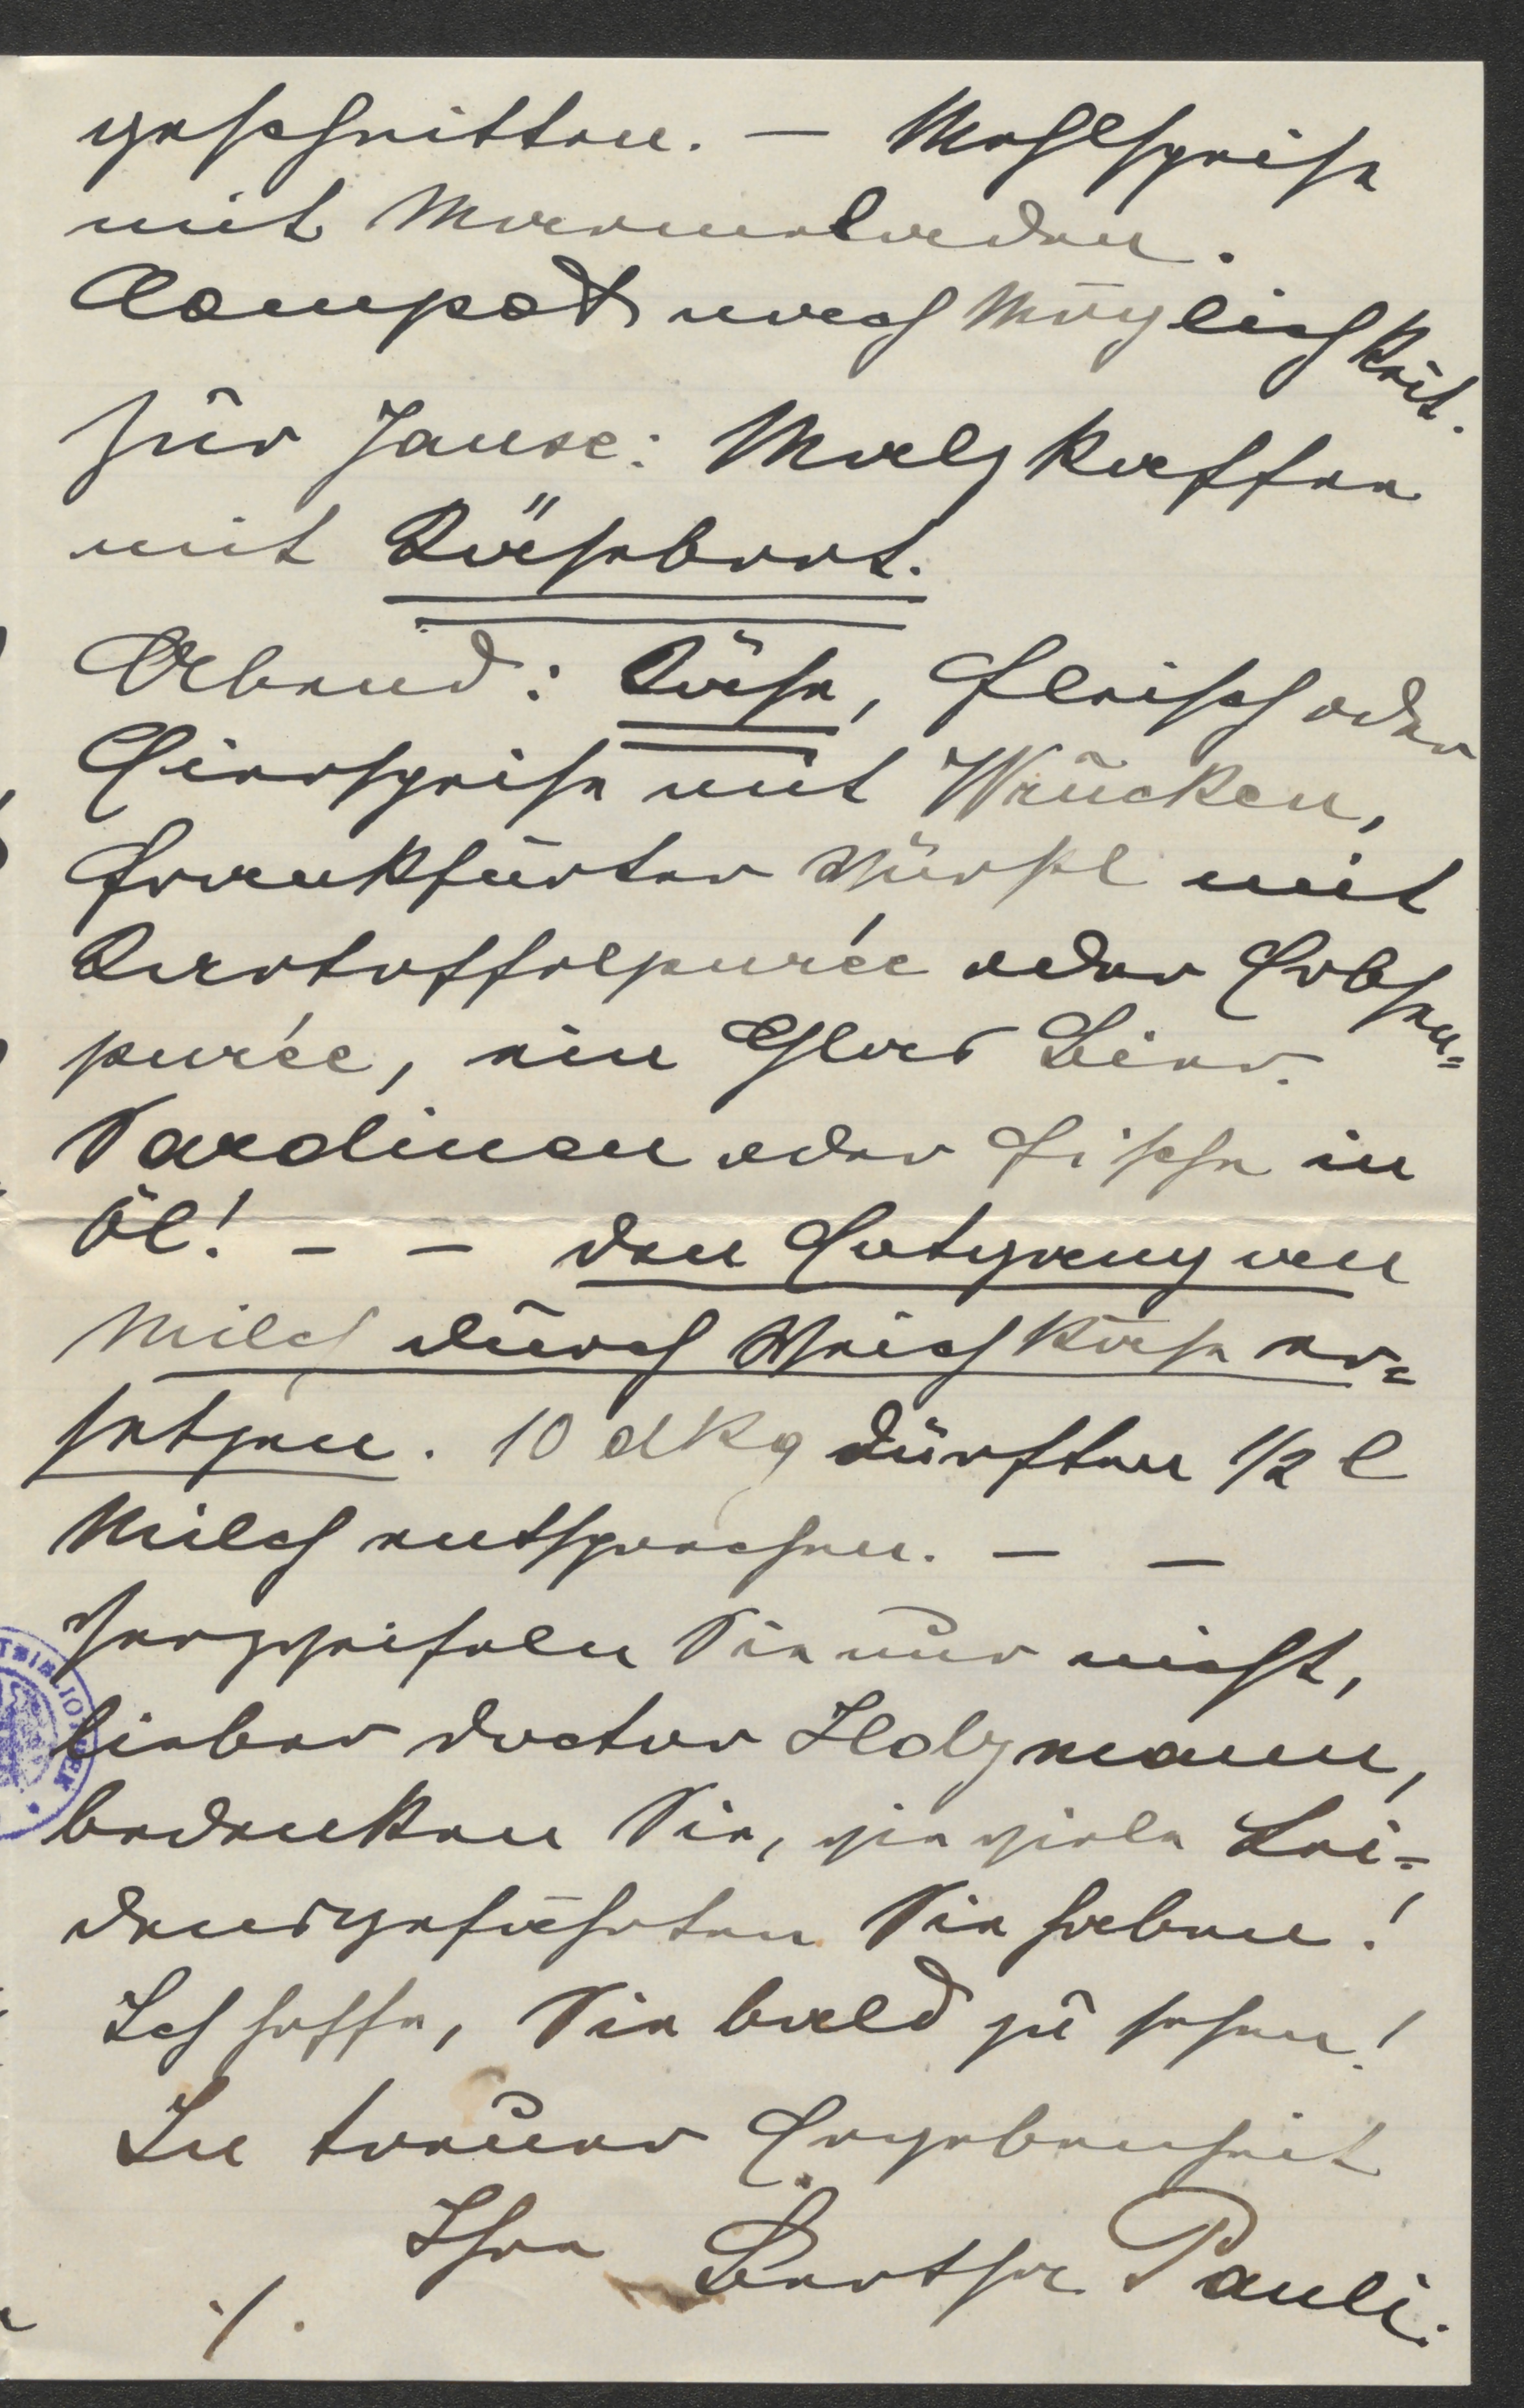 geschnitten. — Mehlspeise
mit Marmeladen.
Compot nach Möglichkeit.
für Jause: Malzkaffee
mit Käsebrot.
Abend: Käse, Fleisch oder
Eierspeise mit Wrucken,
Frankfurter Würstl mit
Kartoffelpurée oder Erbsen=
purée, ein Glas Bier.
Sardinen oder Fische in
Öl! — — den Entgang von
Milch durch Weichkäse er=
setzen. 10 dkg dürften 1/2 l
Milch entsprechen. — —
Verzweifeln Sie nur nicht,
lieber Doctor Holzmann,
bedenken Sie, wie viele Lei=
densgefährten Sie haben!
Ich hoffe, Sie bald zu sehen!
In treuer Ergebenheit
Ihre Bertha Pauli.
./.